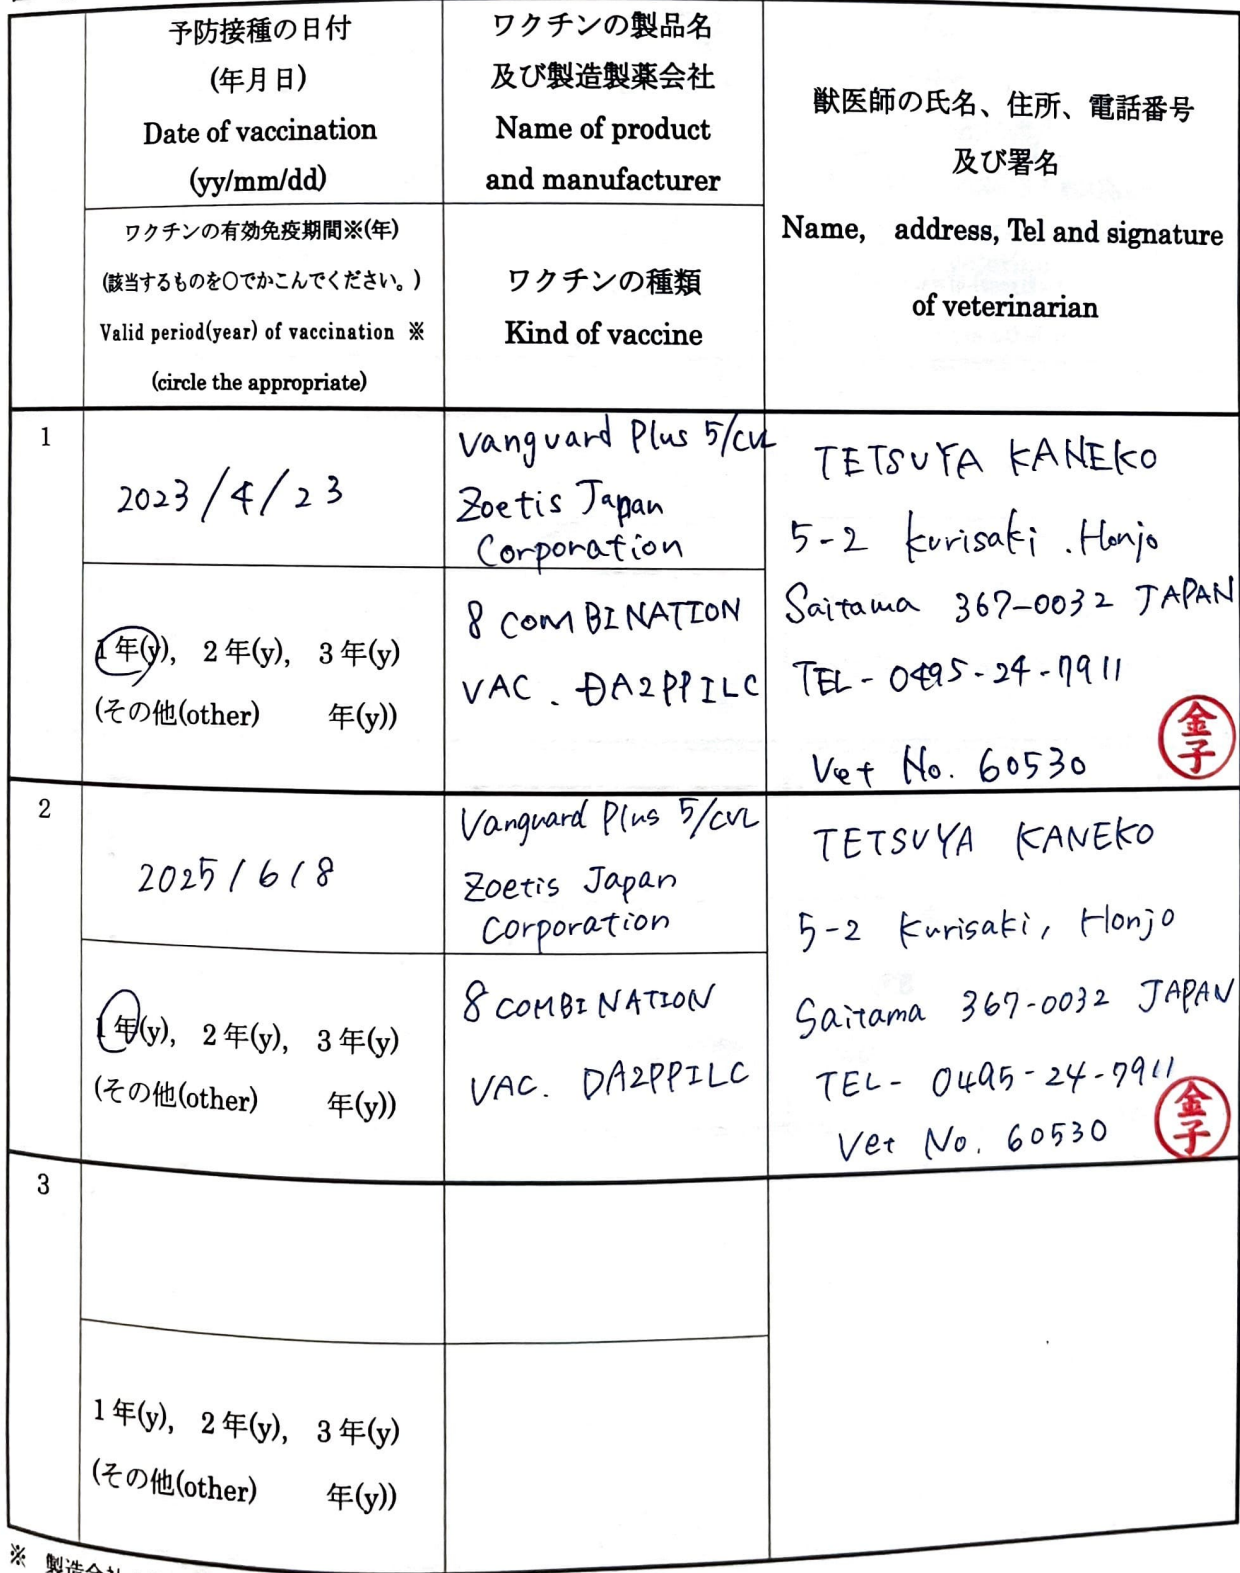 予防接種の日付
(年月日)
Date of vaccination
(yy/mm/dd)
ワクチンの製品名
及び製造製薬会社
Name of product
and manufacturer
獣医師の氏名、住所、電話番号
及び署名
Name, address, Tel and signature
of veterinarian
ワクチンの有効免疫期間※(年)
(該当するものを○でかこんでください。)
Valid period(year) of vaccination ※
(circle the appropriate)
ワクチンの種類
Kind of vaccine
1
2023/4/23
Vanguard Plus 5/CVL
Zoetis Japan
Corporation
TETSUYA KANEKO
5-2 Kurisaki . Honjo
Saitama 367-0032 JAPAN
TEL - 0495-24-7911
Vet No. 60530
金子
1年(y), 2年(y), 3年(y)
(その他(other) 年(y))
8 COMBINATION
VAC. DA2PPILC
2
2025/6/8
Vanguard Plus 5/CVL
Zoetis Japan
Corporation
TETSUYA KANEKO
5-2 Kurisaki, Honjo
Saitama 367-0032 JAPAN
TEL - 0495-24-7911
Vet No. 60530
金子
1年(y), 2年(y), 3年(y)
(その他(other) 年(y))
8 COMBINATION
VAC. DA2PPILC
3
1年(y), 2年(y), 3年(y)
(その他(other) 年(y))
※ 製造会社